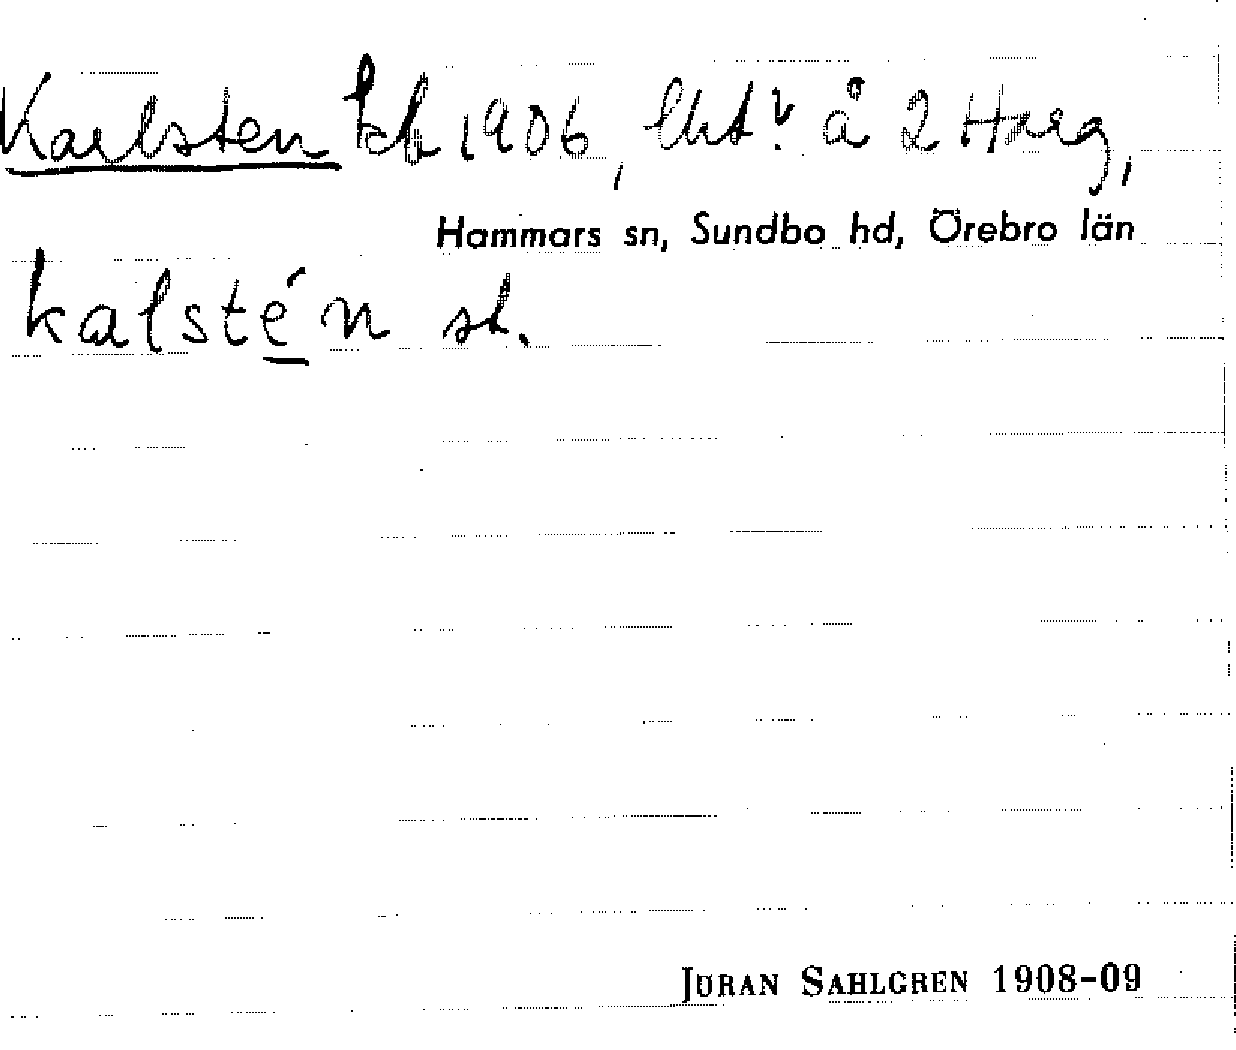 Karlsten kb 1906, lhtv å 2 Harg,
Hammars sn, Sundbo hd, Örebro län
kalstén st.
JÖRAN SAHLGREN 1908-09